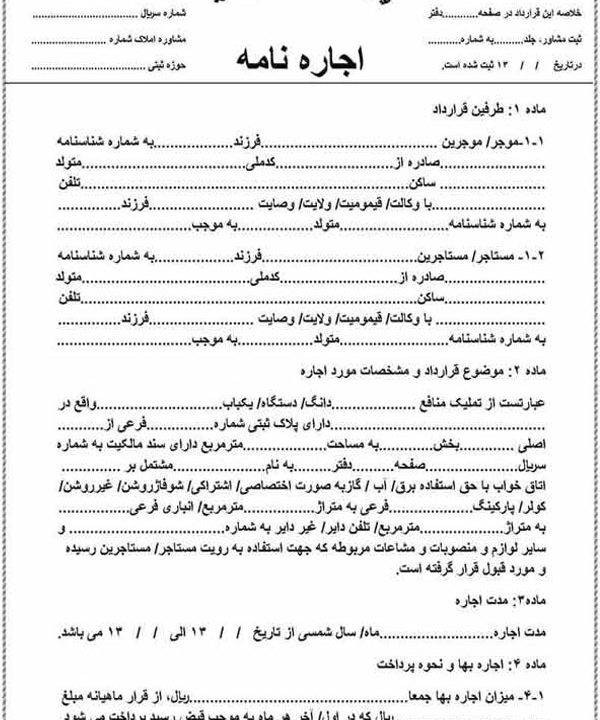 خلاصه این قرارداد در صفحه............دفتر
ثبت مشاور، جلد..........به شماره..............
درتاریخ / / ۱۳ ثبت شده است.
شماره سریال ........................................
مشاوره املاک شماره ................................
حوزه ثبتی ............................................
اجاره نامه
ماده ۱: طرفین قرارداد
۱-۱-موجر/ موجرین ................................فرزند....................به شماره شناسنامه
.........................صادره از..............................کدملی.............................متولد
.......................... ساکن..........................................................................تلفن
..........................با وکالت/ قیمومیت/ ولایت/ وصایت ..........................فرزند......................
به شماره شناسنامه..........................متولد..............................به موجب...........................
۱-۲- مستاجر/ مستاجرین..........................فرزند....................به شماره شناسنامه
..........................صادره از..............................کدملی.............................متولد
..........................ساکن..........................................................................تلفن
.......................... با وکالت/ قیمومیت/ ولایت/ وصایت ..........................فرزند......................
به شماره شناسنامه..........................متولد..............................به موجب...........................
ماده ۲: موضوع قرارداد و مشخصات مورد اجاره
عبارتست از تملیک منافع .....................دانگ/ دستگاه/ یکباب...............................واقع در
.....................................................دارای پلاک ثبتی شماره....................فرعی از...........
اصلی .....................بخش............به مساحت.....................مترمربع دارای سند مالکیت به شماره
سریال................صفحه..............دفتر................به نام.........................مشتمل بر ...............
اتاق خواب با حق استفاده برق/ آب / گازبه صورت اختصاصی/ اشتراکی/ شوفاژروشن/ غیرروشن/
کولر/ پارکینگ..................فرعی به متراژ....................مترمربع/ انباری فرعی..................
به متراژ......................مترمربع/ تلفن دایر/ غیر دایر به شماره............................... و
سایر لوازم و منصوبات و مشاعات مربوطه که جهت استفاده به رویت مستاجر/ مستاجرین رسیده
و مورد قبول قرار گرفته است.
ماده۳: مدت اجاره
مدت اجاره............................ماه/ سال شمسی از تاریخ / / ۱۳ الی / / ۱۳ می باشد.
ماده ۴: اجاره بها و نحوه پرداخت
۴-۱- میزان اجاره بها جمعا........................................ریال، از قرار ماهیانه مبلغ
........................................ریال که در اول/ آخر هر ماه به موجب قبض رسید پرداخت می شود.